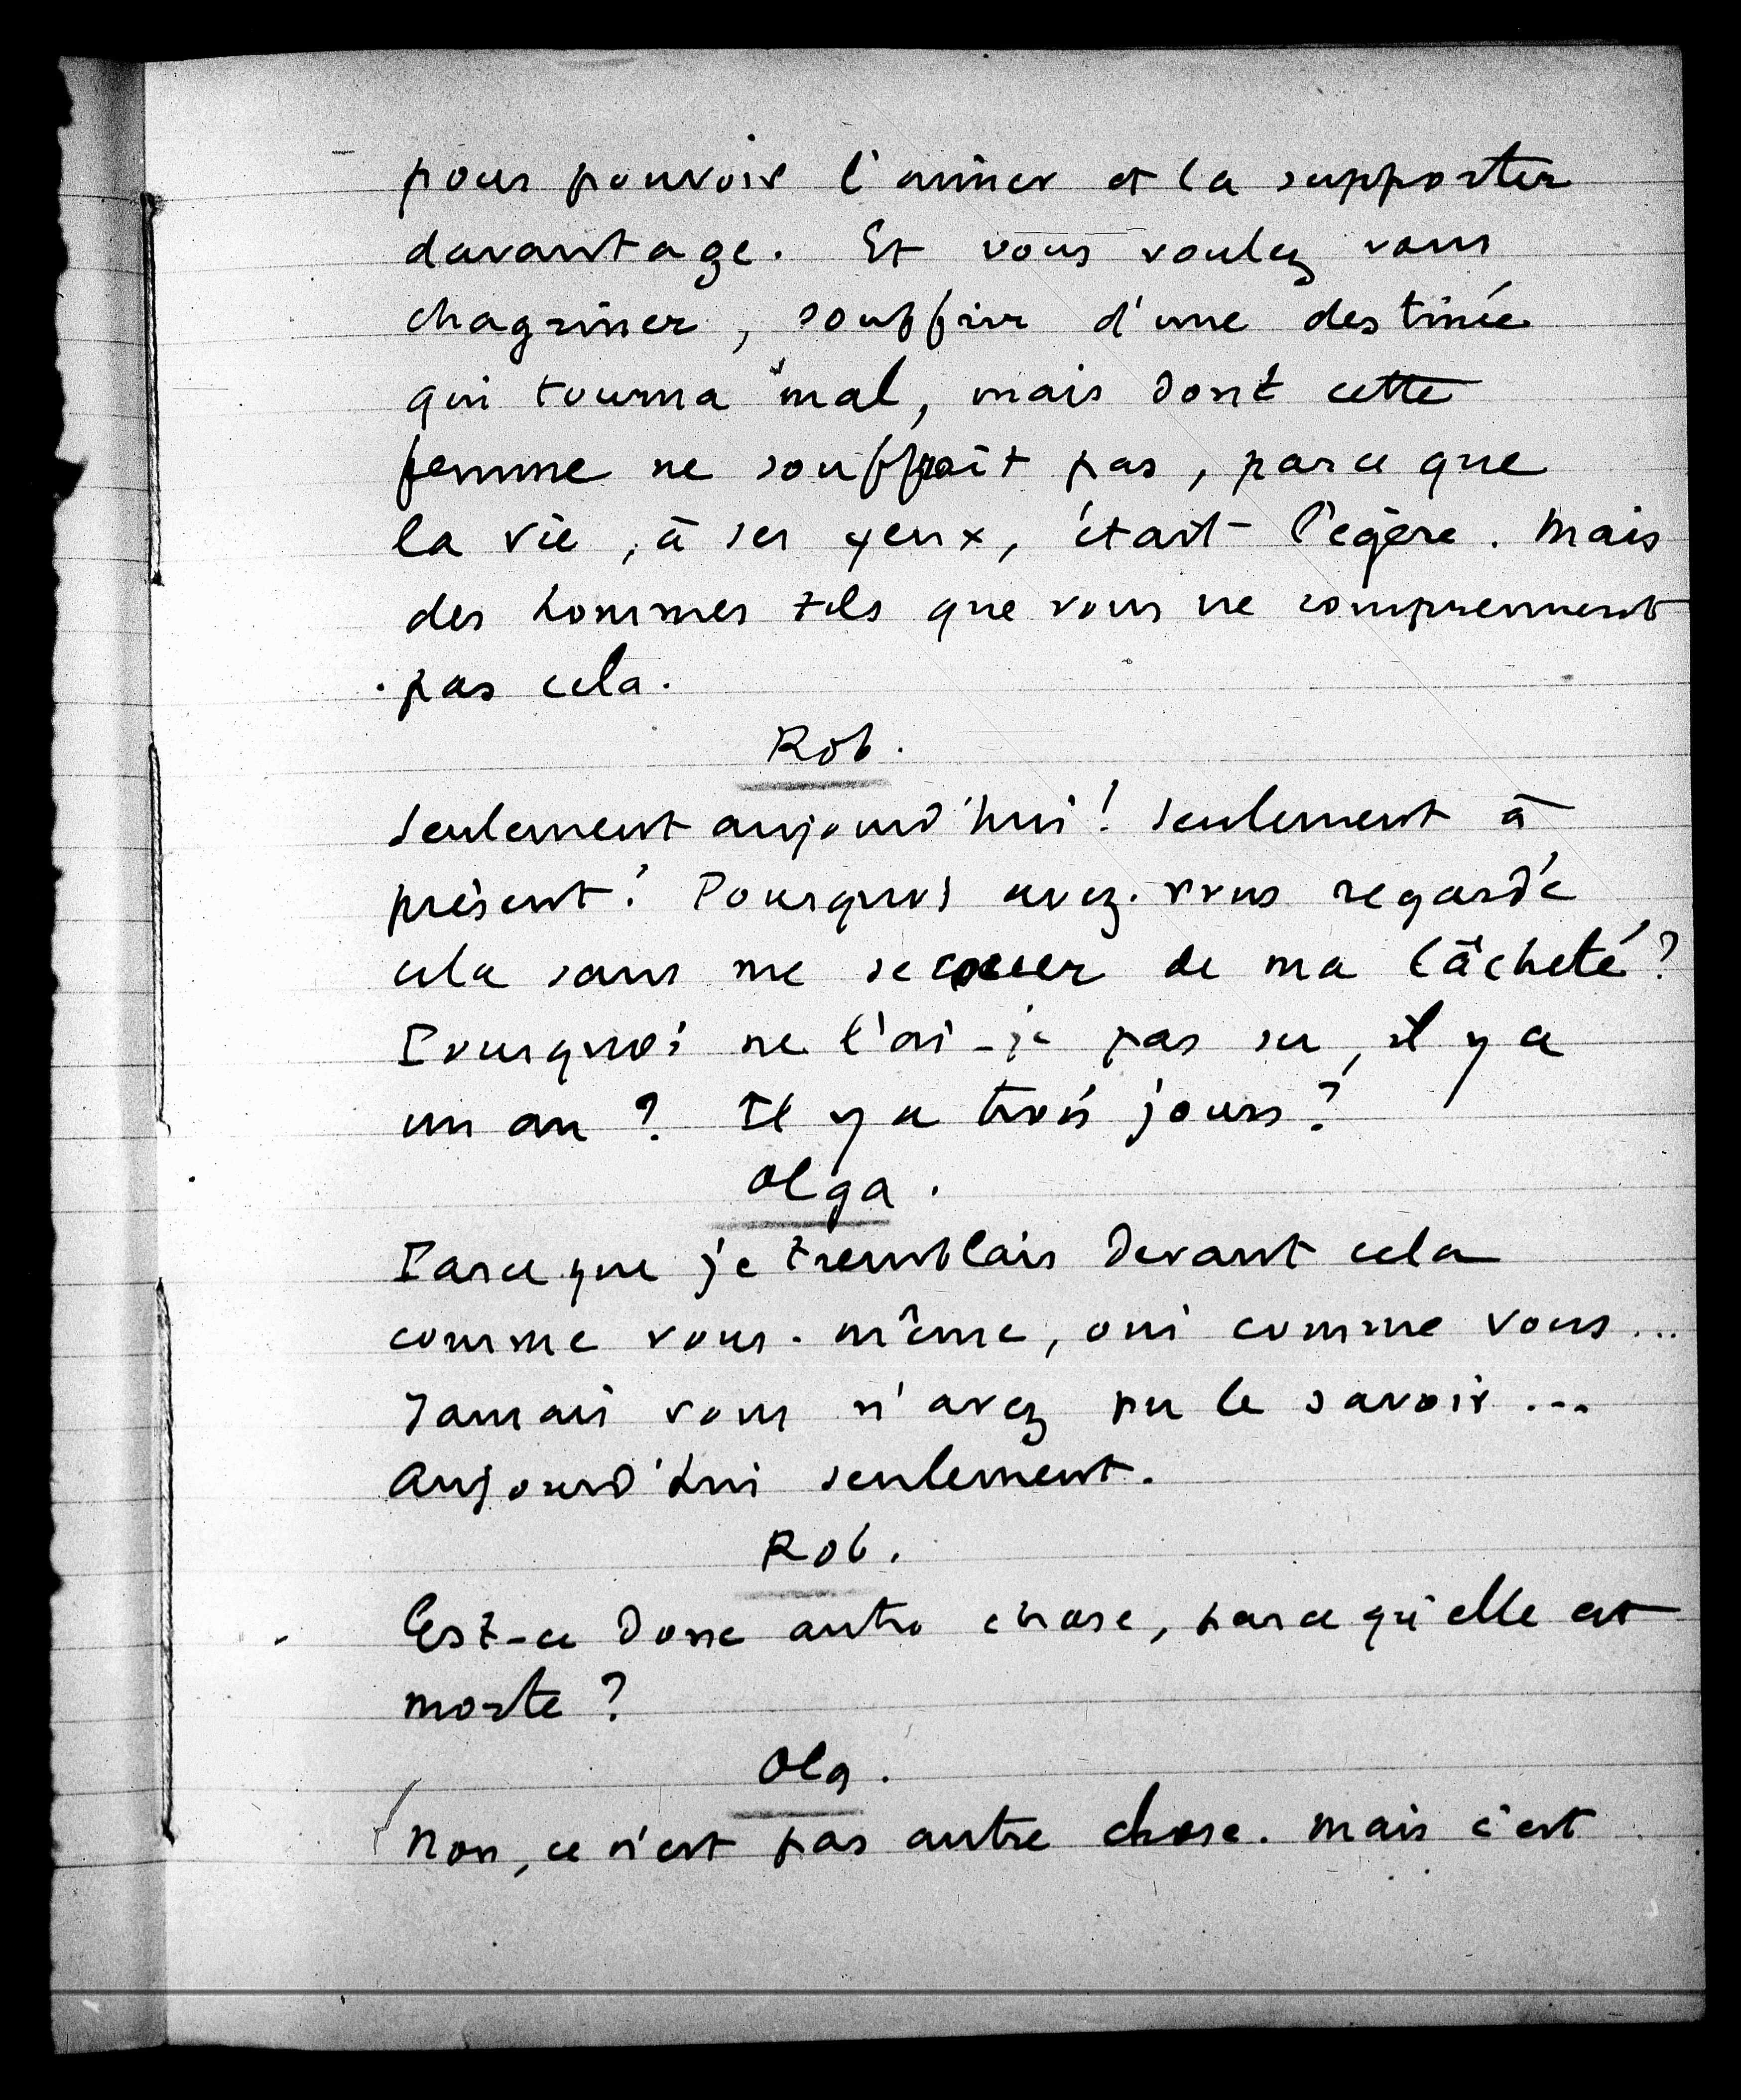 pour pouvoir l'aimer et la supporter
davantage. Et vous voulez vous
chagriner, souffrir d'une destinée
qui tourna mal, mais dont cette
femme ne souffrait pas, parce que
la vie, à ses yeux, était légère. Mais
des hommes tels que vous ne comprennent
pas cela.
Rob.
Seulement aujourd'hui! Seulement à
présent! Pourquoi avez-vous regardé
cela sans me secouer de ma lâcheté?
Pourquoi ne l'ai-je pas su, il y a
un an? Il y a trois jours?
Olga.
Parce que je tremblais devant cela
comme vous-même, oui comme vous...
Jamais vous n'avez pu le savoir...
Aujourd'hui seulement.
Rob.
Est-ce donc autre chose, parce qu'elle est
morte?
Olg.
Non, ce n'est pas autre chose. Mais c'est